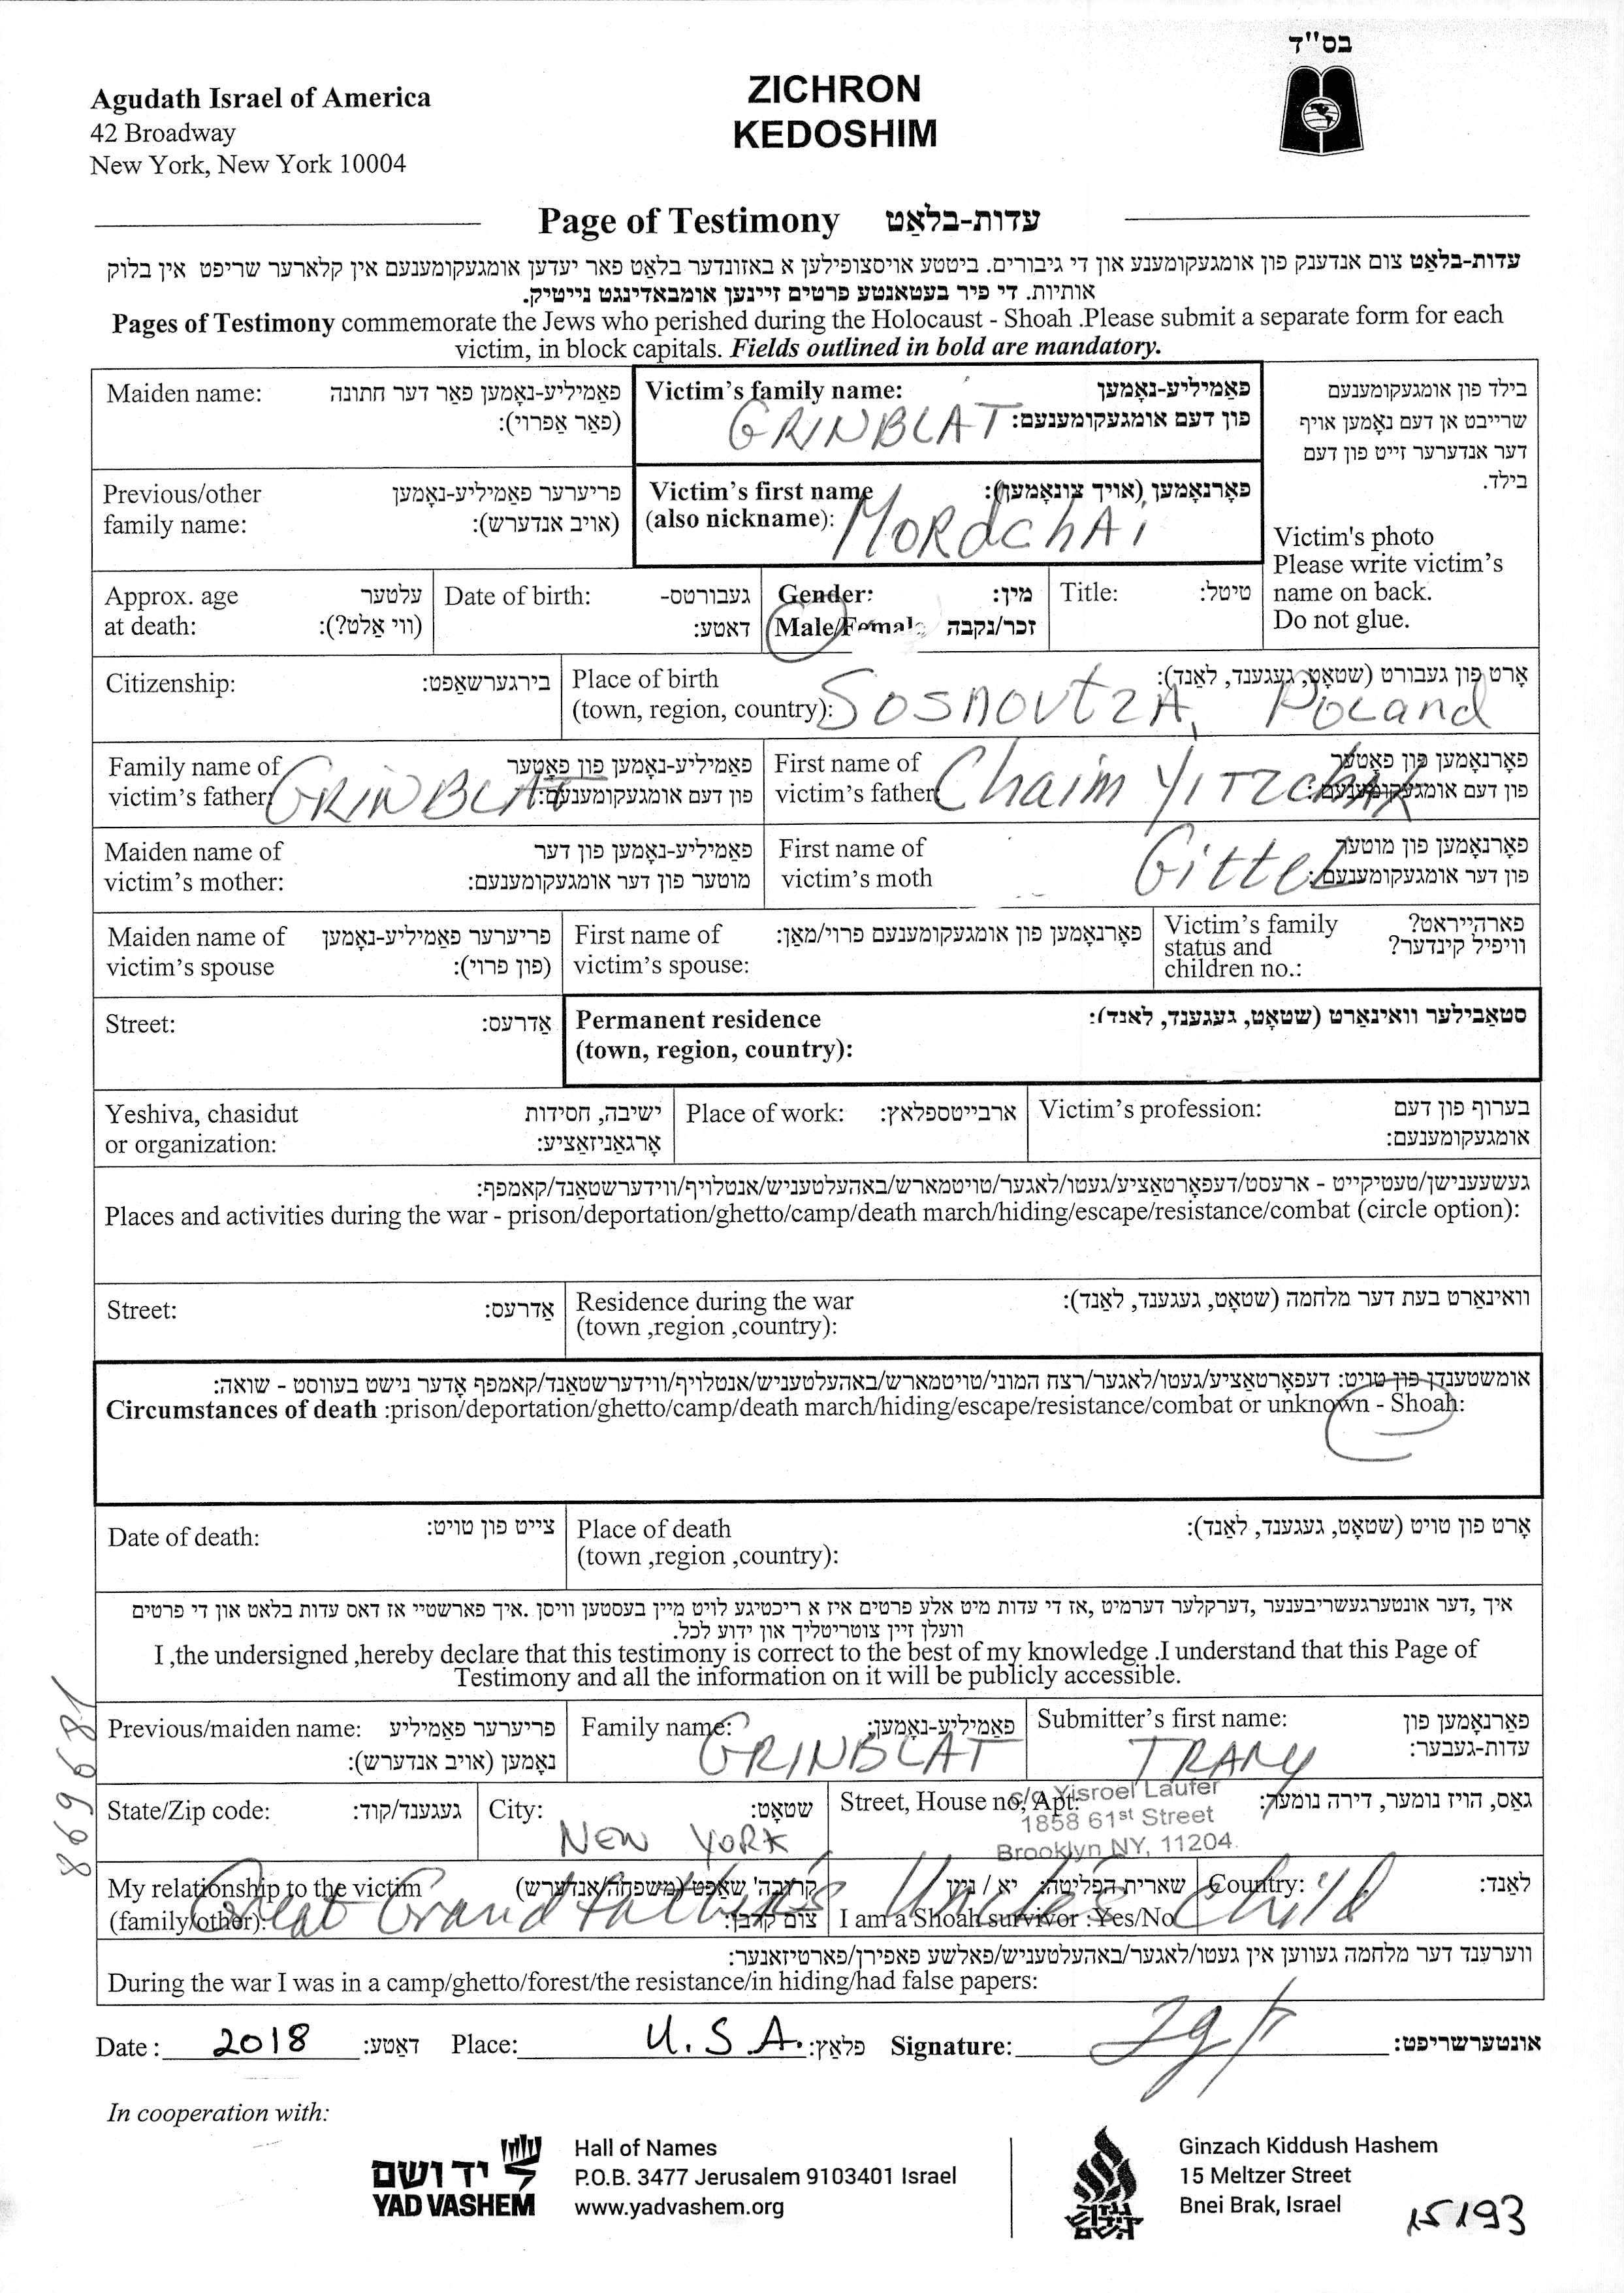 בס"ד
Agudath Israel of America
42 Broadway
New York, New York 10004
ZICHRON
KEDOSHIM
Page of Testimony עדות-בלאַט
עדות-בלאַט צום אנדענק פון אומגעקומענע און די גיבורים. ביטטע אויסצופילען א באזונדער בלאַט פאר יעדען אומגעקומענעם אין קלארער שריפט אין בלוק
אותיות. די פיר בעטאנטע פרטים זיינען אומבאדינגט נייטיק.
Pages of Testimony commemorate the Jews who perished during the Holocaust - Shoah .Please submit a separate form for each
victim, in block capitals. Fields outlined in bold are mandatory.
Maiden name: פאַמיליע-נאָמען פאַר דער חתונה
(פאַר אַפרוי):
Victim's family name: פאַמיליע-נאָמען
פון דעם אומגעקומענעם:
GRINBLAT
בילד פון אומגעקומענעם
שרייבט אן דעם נאָמען אויף
דער אנדערער זייט פון דעם
בילד.
Victim's photo
Please write victim's
name on back.
Do not glue.
Previous/other פריערער פאַמיליע-נאָמען
family name: (אויב אנדערש):
Victim's first name פאָרנאָמען (אויך צונאָמען):
(also nickname): MORdchAi
Approx. age עלטער
at death: (ווי אַלט?):
Date of birth: געבורטס-
דאַטע:
Gender: מין:
Male/Female זכר/נקבה
Title: טיטל:
Citizenship: בירגערשאַפט:
Place of birth אָרט פון געבורט (שטאָט, געגענד, לאַנד):
(town, region, country): SOSNOVtZA, Poland
Family name of פאַמיליע-נאָמען פון פאָטער
victim's father: פון דעם אומגעקומענעם:
GRINBLAT
First name of פאָרנאָמען פון פאָטער
victim's father פון דעם אומגעקומענעם:
Chaim YITZchAK
Maiden name of פאַמיליע-נאָמען פון דער
victim's mother: מוטער פון דער אומגעקומענעם:
First name of פאָרנאָמען פון מוטער
victim's moth פון דער אומגעקומענעם:
Gittel
Maiden name of פריערער פאַמיליע-נאָמען
victim's spouse (פון פרוי):
First name of פאָרנאָמען פון אומגעקומענעם פרוי/מאַן:
victim's spouse:
Victim's family פארהייראט?
status and וויפיל קינדער?
children no.:
Street: אַדרעס:
Permanent residence סטאַבילער וואינאָרט (שטאָט, געגענד, לאנד):
(town, region, country):
Yeshiva, chasidut ישיבה, חסידות
or organization: אָרגאַניזאַציע:
Place of work: ארבייטספלאץ:
Victim's profession: בערוף פון דעם
אומגעקומענעם:
געשעענישן/טעטיקייט - ארעסט/דעפאָרטאַציע/געטו/לאגער/טויטמארש/באהעלטעניש/אנטלויף/ווידערשטאַנד/קאמפף:
Places and activities during the war - prison/deportation/ghetto/camp/death march/hiding/escape/resistance/combat (circle option):
Street: אַדרעס:
Residence during the war וואינאַרט בעת דער מלחמה (שטאָט, געגענד, לאַנד):
(town ,region ,country):
אומשטענדן פון טויט: דעפאָרטאַציע/געטו/לאגער/רצח המוני/טויטמארש/באהעלטעניש/אנטלויף/ווידערשטאַנד/קאמפף אָדער נישט בעוווסט - שואה:
Circumstances of death :prison/deportation/ghetto/camp/death march/hiding/escape/resistance/combat or unknown - Shoah:
Date of death: צייט פון טויט:
Place of death אָרט פון טויט (שטאָט, געגענד, לאַנד):
(town ,region ,country):
איך ,דער אונטערגעשריבענער ,דערקלער דערמיט ,אז די עדות מיט אלע פרטים איז א ריכטיגע לויט מיין בעסטען וויסן .איך פארשטיי אז דאס עדות בלאט און די פרטים
וועלן זיין צוטריטליך און ידוע לכל.
I ,the undersigned ,hereby declare that this testimony is correct to the best of my knowledge .I understand that this Page of
Testimony and all the information on it will be publicly accessible.
869681
Previous/maiden name: פריערער פאַמיליע
נאָמען (אויב אנדערש):
Family name: פאַמיליע-נאָמען:
GRINBLAT
Submitter's first name: פאָרנאָמען פון
עדות-געבער:
State/Zip code: געגענד/קוד:
City: שטאָט:
NEW YORK
Street, House no, Apt: גאַס, הויז נומער, דירה נומער:
c/o Yisroel Laufer
1858 61st Street
Brooklyn NY, 11204.
My relationship to the victim קרובה' שאַפט (משפחה/אנדערש)
(family/other): צום קרבן:
I am a Shoah survivor :Yes/No שארית הפליטה: יא / ניין
Country: לאַנד:
Great Grandfather's Uncle's Child
ווערענד דער מלחמה געווען אין געטו/לאגער/באהעלטעניש/פאלשע פאפירן/פארטיזאנער:
During the war I was in a camp/ghetto/forest/the resistance/in hiding/had false papers:
Date : 2018 דאַטע: Place: U.S.A. פלאַץ: Signature: אונטערשריפט:
In cooperation with:
יד ושם
YAD VASHEM
Hall of Names
P.O.B. 3477 Jerusalem 9103401 Israel
www.yadvashem.org
גנזך
קידוש
השם
Ginzach Kiddush Hashem
15 Meltzer Street
Bnei Brak, Israel
15193